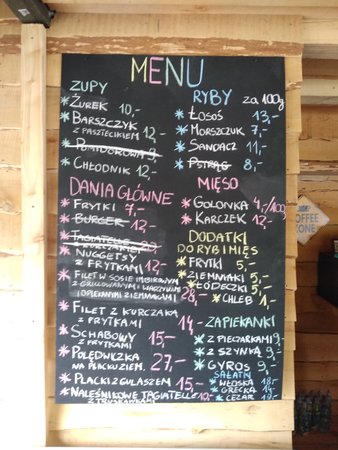 MENU
ZUPY
* ŻUREK 10,-
* BARSZCZYK
Z PASZTECIKIEM 12,-
* POMIDOROWA 9,-
* CHŁODNIK 12,-
DANIA GŁÓWNE
* FRYTKI 4,-
* BURGER 12,-
* TAGIATELLE
* NUGGETSY
Z FRYTKAMI 12,-
* FILET W SOSIE IMBIROWYM
Z GRILLOWANYMI WARZYWAMI
I OPIEKANYMI ZIEMNIAKAMI 28,-
* FILET Z KURCZAKA
Z FRYTKAMI 14,-
* SCHABOWY
Z FRYTKAMI 15,-
* POLĘDWICZKA
NA PLACKU ZIEM. 27,-
* PLACKI Z GULASZEM 15,-
* NALEŚNIKOWE TAGIATELLE
Z TRUSKAWKAMI 10,-
RYBY za 100g
* ŁOSOŚ 13,-
* MORSZCZUK 7,-
* SANDACZ 11,-
* PSTRĄG 8,-
MIĘSO
* GOLONKA 4,-/100g
* KARCZEK 12,-
DODATKI
DO RYB I MIĘS
* FRYTKI 5,-
* ZIEMNIAKI 5,-
* ŁÓDECZKI 5,-
* CHLEB 1,-
ZAPIEKANKI
* Z PIECZARKAMI 9,-
* Z SZYNKĄ 9,-
* GYROS 9,-
SAŁATKI
* WŁOSKA 18,-
* GRECKA 14,-
* CEZAR 19,-
COFFEE
ZONE